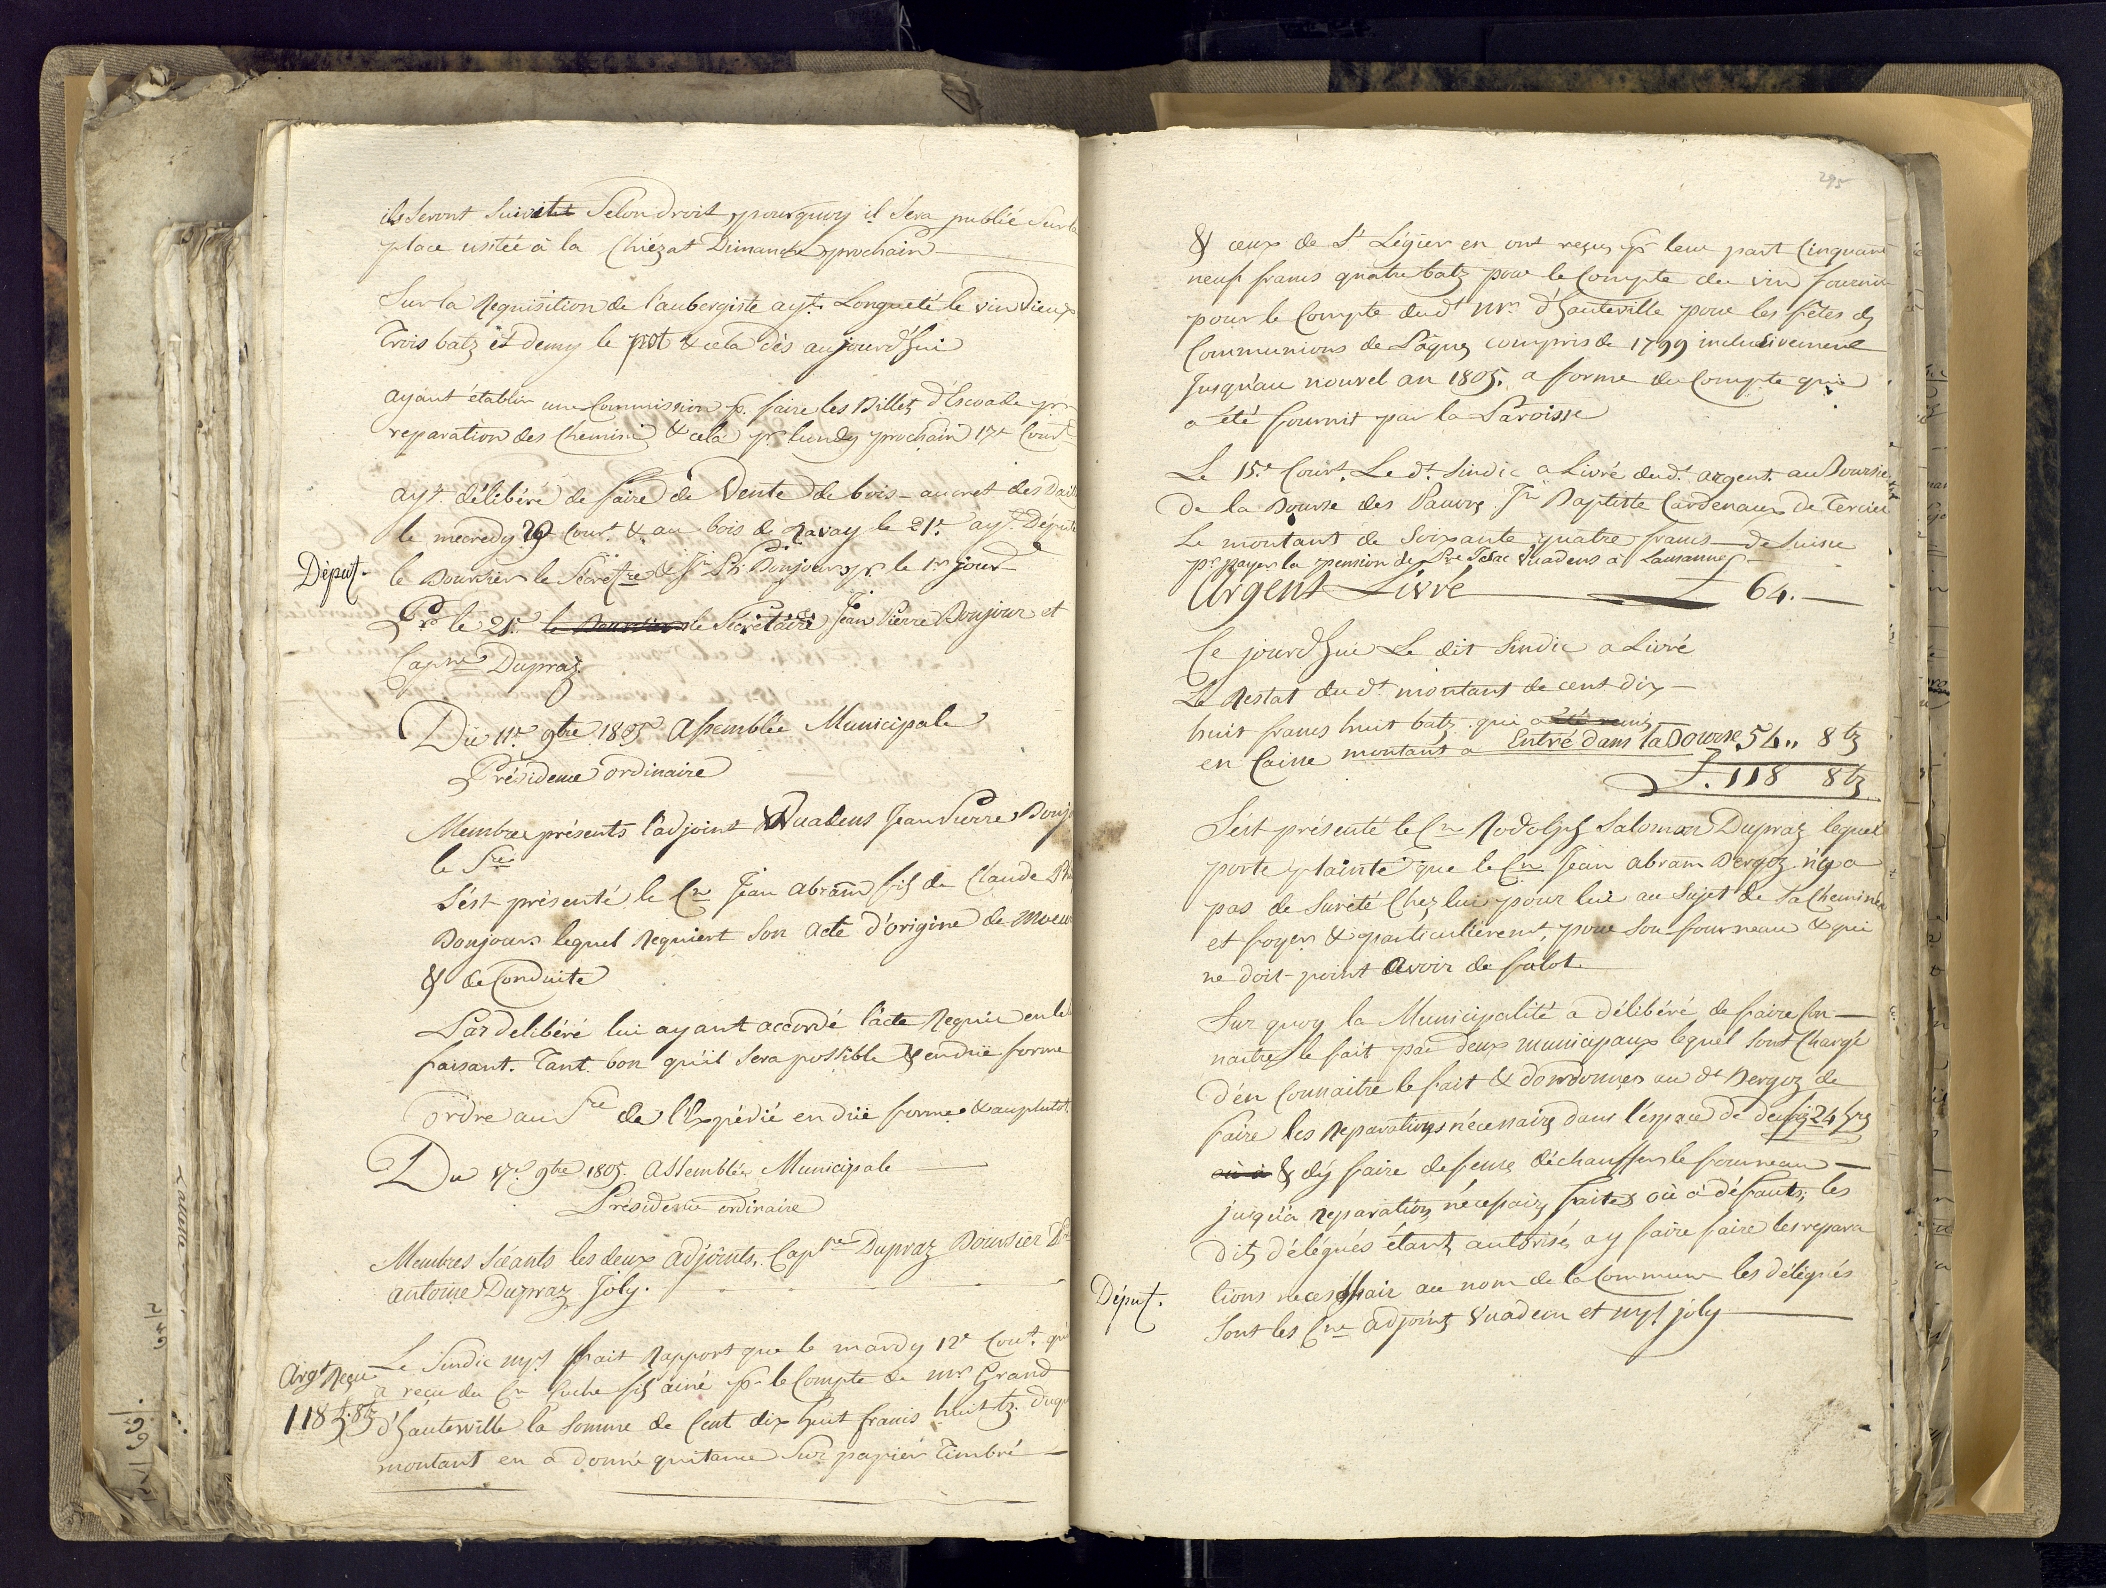 ils seront suivit selon droit pourquoy il sera publié sur la
place usitée à la Chiézat Dimanche prochain
Sur la Requisition de l'aubergiste ayt. Longueté le vin vieux
Trois batz et demy le pot & cela dès aujourd'hui
ayant établir une Commission pr. faire les Billets d'Escoade pr
reparation des Chemins & cela pr lundy prochain 17e Court
ayt délibéré de faire de Vente de bois au cret des
le mecredy Cour. & au bois de Ravay le 21e. ayt. Député
Déput. le Boursier le Secretre & Jn Ph: Bonjour pr. le 1er jour
Pr le 21e. le Boursier le Secretaire Jean Pierre Bonjour et
Capne Dupraz
Du 11e. 9bre 1805 Assemblée Municipale
Présidence ordinaire
Membre présents l'adjoint Vuadens Jean Pierre
le Sre
S'ést présenté le Cn Jean abram fils de Claude
Bonjours lequel Requiert son acte d'origine de moeur
& de Conduite
Par delibéré lui ayant accordé l'acte Requis en le
faisant. Tant bon qu'il sera possible & en düe forme
Ordre au Sre de l'Expédié en düe forme & au plutot.
Du 17e. 9bre 1805. Assemblée Municipale
Présidence ordinaire
Membres séants les deux adjoints, Capne Dupraz Boursier
antoine Dupraz Joly.
Argt Reçu Le Sindic fait Rapport que le mardy 12e Cout. qu'il
a reçu du Cn fils ainé pr le Compte de mr Grand
118 f. 8 bz d'hauteville la somme de Cent dix huit francs huit bz. duquel
montant en a donné quitance Sur papier Timbré
295
& ceux de St Légier en ont reçus pr leur part Cinquante
neuf francs quatre batz pour le Compte du vin fournit
pour le Compte dudt mr d'hauteville pour les fêtes &
Communions de Pâques compris de 1799 inclusivement
Jusqu'au nouvel an 1805. a forme du Compte qui
a été fournit par la Paroisse
Le 15e. Court. Le dt Sindic a Livré dudt argent. au Boursier
De la Bourse des Pauvre Jn Baptiste Cardenaux de Tercier
Le montant de Soixante quatre francs de Suisse
pr payer la pension de Isac Vuadens à Lausanne
Argent Livré 64.
Ce jourd'hui Le dit Sindic a Livré
Le Restat du dt montant de cent dix
huit francs huit batz qui a été remis
en Caisse montant a Entré dans la Bourse 54,, 8 bz
f. 118 8 bz
S'ést présenté le Cn Rodolph Salomon Dupraz lequel
porte plainte que le Cn Jean abram Dergoz n'y a
pas de Sureté Chez lui pour lui au sujet de sa Cheminée
et foyer & particulierent, pour son fourneau & qui
ne doit point avoir de falot.
Sur quoy la Municipalité a délibéré de faire Con
naitre le fait par deux municipaux lequel sont Chargé
D'en Connaitre le fait & d'ordonner au dt Dergoz de
faire les Reparations nécessaire dans l'éspace de 24 hrs
& d'y faire defense d'échauffer le fourneau
jusqu'a Reparation nécessaire faites où à défauts, les
dits délégués étants autorisés a y faire faire les repara
Déput. tions necessair au nom de la Commune les délégués
Sont les Cns adjoint Vuadens et joly